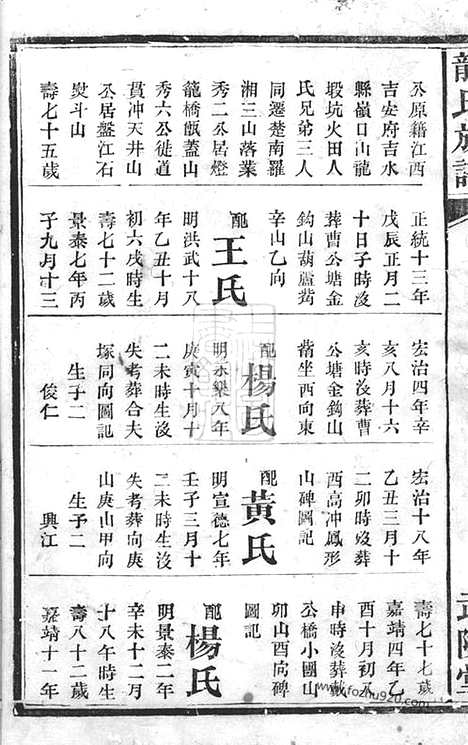 龍氏族譜
公原籍江西
吉安府吉水
縣嶺口山龍
塅坑火田人
氏兄弟三人
同遷楚南羅
湘三山落業
秀二公居燈
籠橋甑蓋山
秀六公徙道
貫冲天井山
公居盤江石
熨斗山
壽七十五歲
正統十三年
戊辰正月二
十日子時沒
葬曹公塘金
鈎山葫蘆嘴
辛山乙向
配王氏
明洪武十八
年乙丑十月
初六戌時生
壽七十二歲
景泰七年丙
子九月十三
宏治四年辛
亥八月十六
亥時沒葬曹
公塘金鈎山
嘴坐西向東
配楊氏
明永樂八年
庚寅十月十
二未時生沒
失考葬合夫
塚同向圖記
生子二
俊仁
宏治十八年
乙丑三月十
二卯時歿葬
西高冲鳳形
山碑圖記
配黃氏
明宣德七年
壬子三月十
二未時生沒
失考葬向庚
山庚山甲向
生子二
興江
壽七十七歲
嘉靖四年乙
酉十月初八
申時沒葬戴
公橋小國山
卯山酉向碑
圖記
配楊氏
明景泰二年
辛未十二月
十八年時生
壽八十二歲
嘉靖十一年
武陵堂
www.fozhu920.com